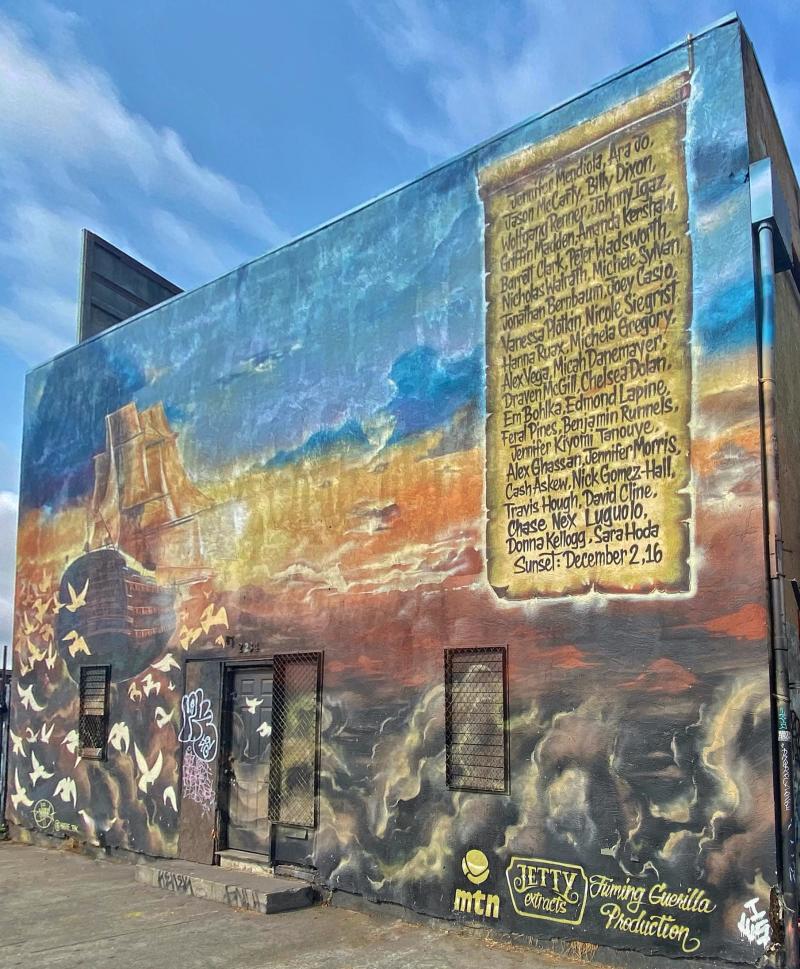 Jennifer Mendiola, Ara Jo,
Jason McCarty, Billy Dixon,
Wolfgang Renner, Johnny Igaz,
Griffin Madden, Amanda Kershaw,
Barrett Clark, Peter Wadsworth,
Nicholas Walrath, Michele Sylvan,
Jonathan Bernbaum, Joey Casio,
Vanessa Plotkin, Nicole Siegrist
Hanna Ruax, Michela Gregory,
Alex Vega, Micah Danemayer,
Draven McGill, Chelsea Dolan,
Em Bohlka, Edmond Lapine,
Feral Pines, Benjamin Runnels,
Jennifer Kiyomi Tanouye,
Alex Ghassan, Jennifer Morris,
Cash Askew, Nick Gomez-Hall,
Travis Hough, David Cline,
Chase Nex Luguolo,
Donna Kellogg, Sara Hoda
Sunset: December 2, 16
mtn
JETTY
extracts
Fuming Guerilla
Production